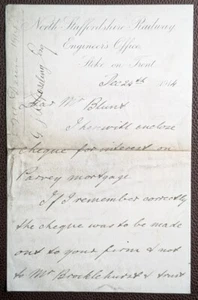 North Staffordshire Railway
Engineers Office,
Stoke on Trent
Dec 24th
Dear Mr Blunt
I herewith enclose
cheque for interest on
mortgage.
If I remember correctly
the cheque was to be made
out to your firm & not
to Mr Brocklehurst & trust